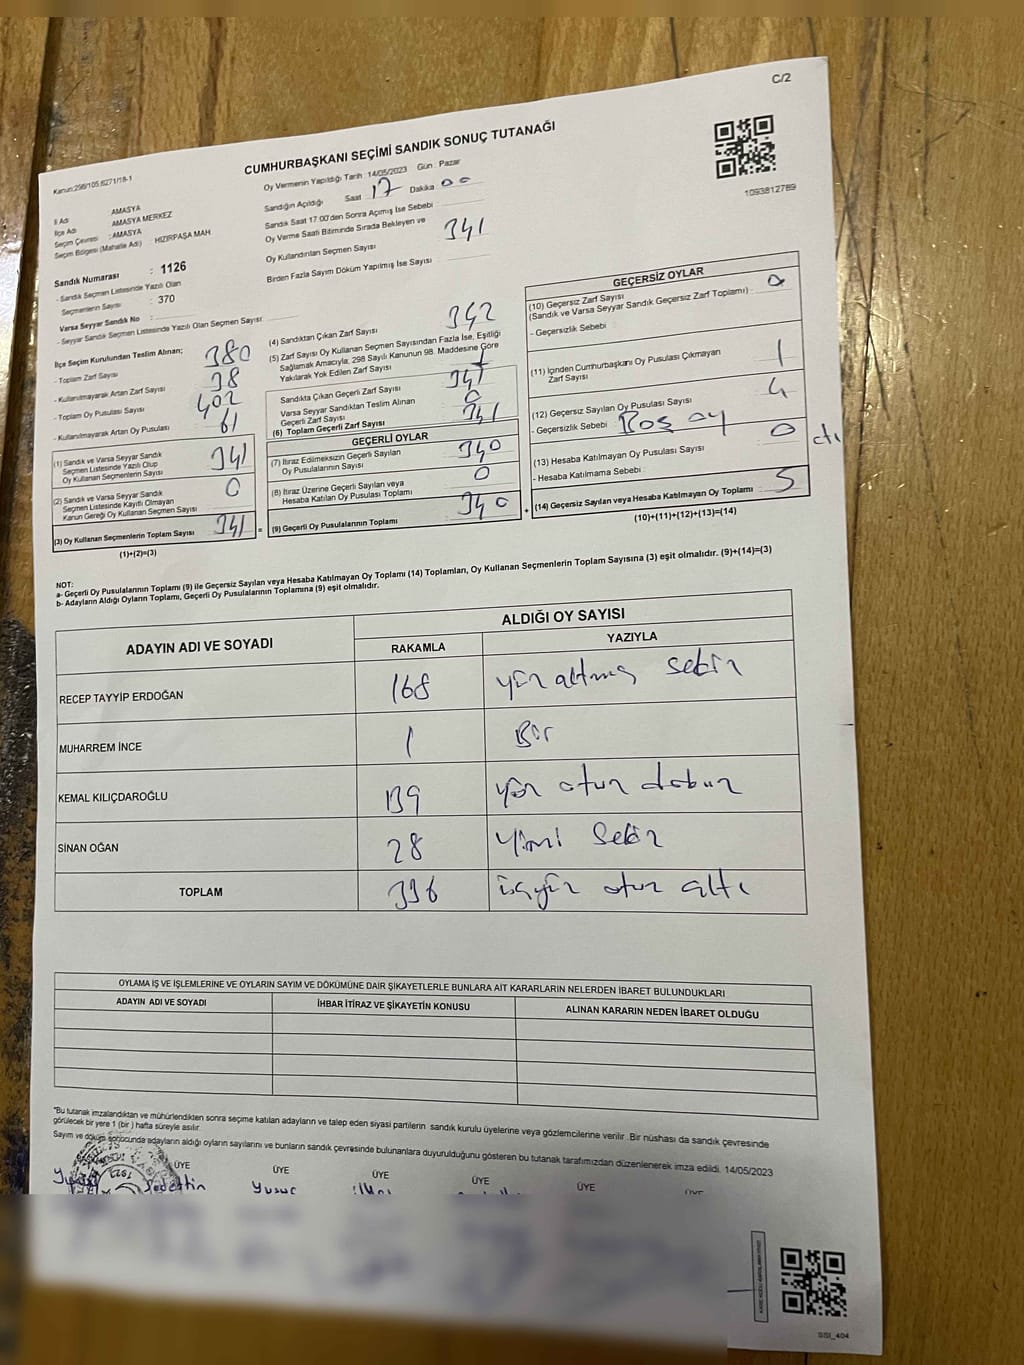 C/2
CUMHURBAŞKANI SEÇİMİ SANDIK SONUÇ TUTANAĞI
Kanun:298/105,6271/18-1
1093812789
İl Adı AMASYA
İlçe Adı AMASYA MERKEZ
Seçim Çevresi :AMASYA
Seçim Bölgesi (Mahalle Adı) HIZIRPAŞA MAH
Sandık Numarası : 1126
- Sandık Seçmen Listesinde Yazılı Olan
Seçmenlerin Sayısı : 370
Varsa Seyyar Sandık No :
- Seyyar Sandık Seçmen Listesinde Yazılı Olan Seçmen Sayısı:
Oy Vermenin Yapıldığı Tarih : 14/05/2023 Gün : Pazar
Sandığın Açıldığı Saat : 17 Dakika 00
Sandık Saat 17:00'den Sonra Açılmış İse Sebebi :
Oy Verme Saati Bitiminde Sırada Bekleyen ve
Oy Kullandırılan Seçmen Sayısı 341
Birden Fazla Sayım Döküm Yapılmış İse Sayısı :
İlçe Seçim Kurulundan Teslim Alınan;
- Toplam Zarf Sayısı 380
- Kullanılmayarak Artan Zarf Sayısı 38
- Toplam Oy Pusulası Sayısı 402
- Kullanılmayarak Artan Oy Pusulası 61
(1) Sandık ve Varsa Seyyar Sandık
Seçmen Listesinde Yazılı Olup
Oy Kullanan Seçmenlerin Sayısı 341
(2) Sandık ve Varsa Seyyar Sandık
Seçmen Listesinde Kayıtlı Olmayan
Kanun Gereği Oy Kullanan Seçmen Sayısı 0
(3) Oy Kullanan Seçmenlerin Toplam Sayısı 341 =
(1)+(2)=(3)
(4) Sandıktan Çıkan Zarf Sayısı 342
(5) Zarf Sayısı Oy Kullanan Seçmen Sayısından Fazla İse, Eşitliği
Sağlamak Amacıyla; 298 Sayılı Kanunun 98. Maddesine Göre
Yakılarak Yok Edilen Zarf Sayısı 1
Sandıkta Çıkan Geçerli Zarf Sayısı 341
Varsa Seyyar Sandıktan Teslim Alınan
Geçerli Zarf Sayısı 0
(6) Toplam Geçerli Zarf Sayısı 341
GEÇERLİ OYLAR
(7) İtiraz Edilmeksizin Geçerli Sayılan
Oy Pusulalarının Sayısı 340
(8) İtiraz Üzerine Geçerli Sayılan veya
Hesaba Katılan Oy Pusulası Toplamı 0
(9) Geçerli Oy Pusulalarının Toplamı 340 +
GEÇERSİZ OYLAR
(10) Geçersiz Zarf Sayısı
(Sandık ve Varsa Seyyar Sandık Geçersiz Zarf Toplamı) :
- Geçersizlik Sebebi
(11) İçinden Cumhurbaşkanı Oy Pusulası Çıkmayan
Zarf Sayısı 1
(12) Geçersiz Sayılan Oy Pusulası Sayısı 4
- Geçersizlik Sebebi Boş oy
(13) Hesaba Katılmayan Oy Pusulası Sayısı 0
- Hesaba Katılmama Sebebi
(14) Geçersiz Sayılan veya Hesaba Katılmayan Oy Toplamı 5
(10)+(11)+(12)+(13)=(14)
NOT:
a- Geçerli Oy Pusulalarının Toplamı (9) ile Geçersiz Sayılan veya Hesaba Katılmayan Oy Toplamı (14) Toplamları, Oy Kullanan Seçmenlerin Toplam Sayısına (3) eşit olmalıdır. (9)+(14)=(3)
b- Adayların Aldığı Oyların Toplamı, Geçerli Oy Pusulalarının Toplamına (9) eşit olmalıdır.
ADAYIN ADI VE SOYADI ALDIĞI OY SAYISI
RAKAMLA YAZIYLA
RECEP TAYYİP ERDOĞAN 168 yüz altmış sekiz
MUHARREM İNCE 1 Bir
KEMAL KILIÇDAROĞLU 139 yüz otuz dokuz
SİNAN OĞAN 28 yirmi sekiz
TOPLAM 336 üçyüz otuz altı
OYLAMA İŞ VE İŞLEMLERİNE VE OYLARIN SAYIM VE DÖKÜMÜNE DAİR ŞİKAYETLERLE BUNLARA AİT KARARLARIN NELERDEN İBARET BULUNDUKLARI
ADAYIN ADI VE SOYADI İHBAR İTİRAZ VE ŞİKAYETİN KONUSU ALINAN KARARIN NEDEN İBARET OLDUĞU
*Bu tutanak imzalandıktan ve mühürlendikten sonra seçime katılan adayların ve talep eden siyasi partilerin sandık kurulu üyelerine veya gözlemcilerine verilir. Bir nüshası da sandık çevresinde
görülecek bir yere 1 (bir ) hafta süreyle asılır.
Sayım ve döküm sonucunda adayların aldığı oyların sayılarını ve bunların sandık çevresinde bulunanlara duyurulduğunu gösteren bu tutanak tarafımızdan düzenlenerek imza edildi. 14/05/2023
ÜYE ÜYE ÜYE ÜYE ÜYE ÜYE
Yusuf
SISI_404